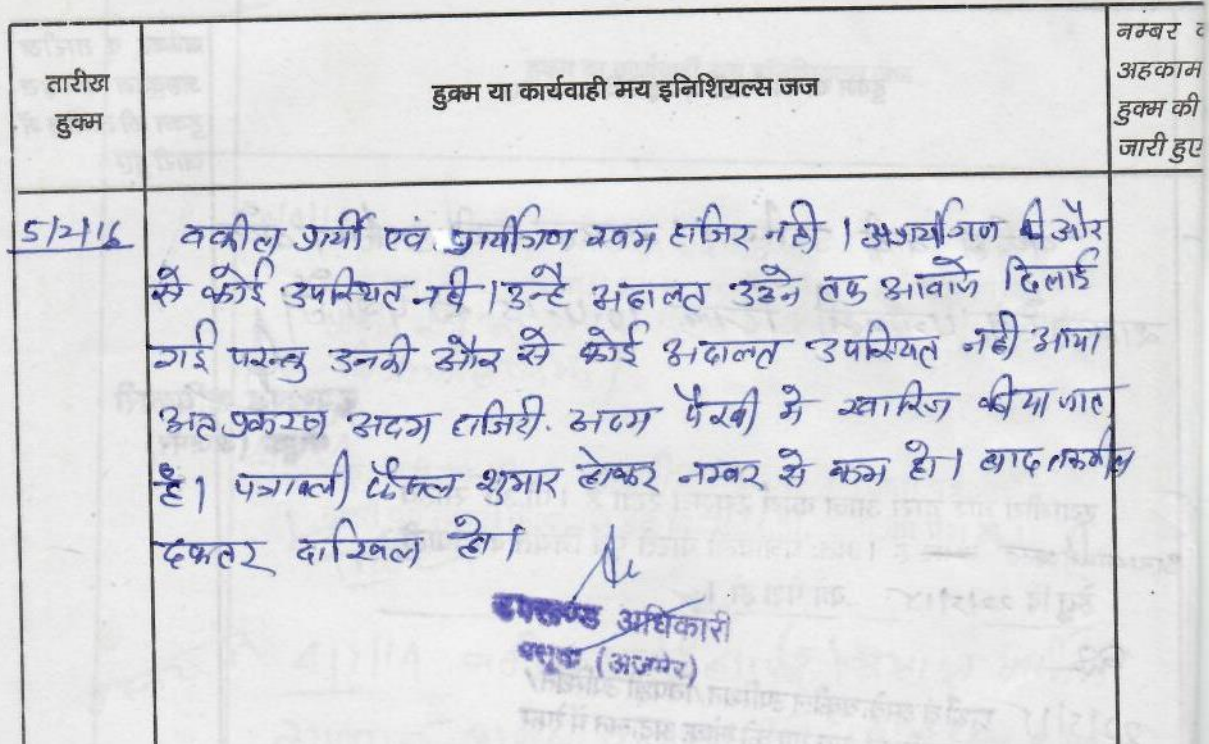 तारीख
हुक्म
हुक्म या कार्यवाही मय इनिशियल्स जज
नम्बर व
अहकाम
हुक्म की
जारी हुए
5/2/16 वकील प्रार्थी एवं प्रार्थीगण स्वयम हाजिर नही । अप्रार्थीगण की और
से कोई उपस्थित नही । उन्है अदालत उठने तक आवाजे दिलाई
गई परन्तु उनकी और से कोई अदालत उपस्थित नही आया
अत प्रकरण अदम हाजिरी. अदम पैरवी मे खारिज कीया जाता
है। पत्रावली फैसल शुमार होकर नम्बर से कम हो। बाद तकमील
दफतर दाखिल हो।
उपखण्ड अधिकारी
(अजमेर)